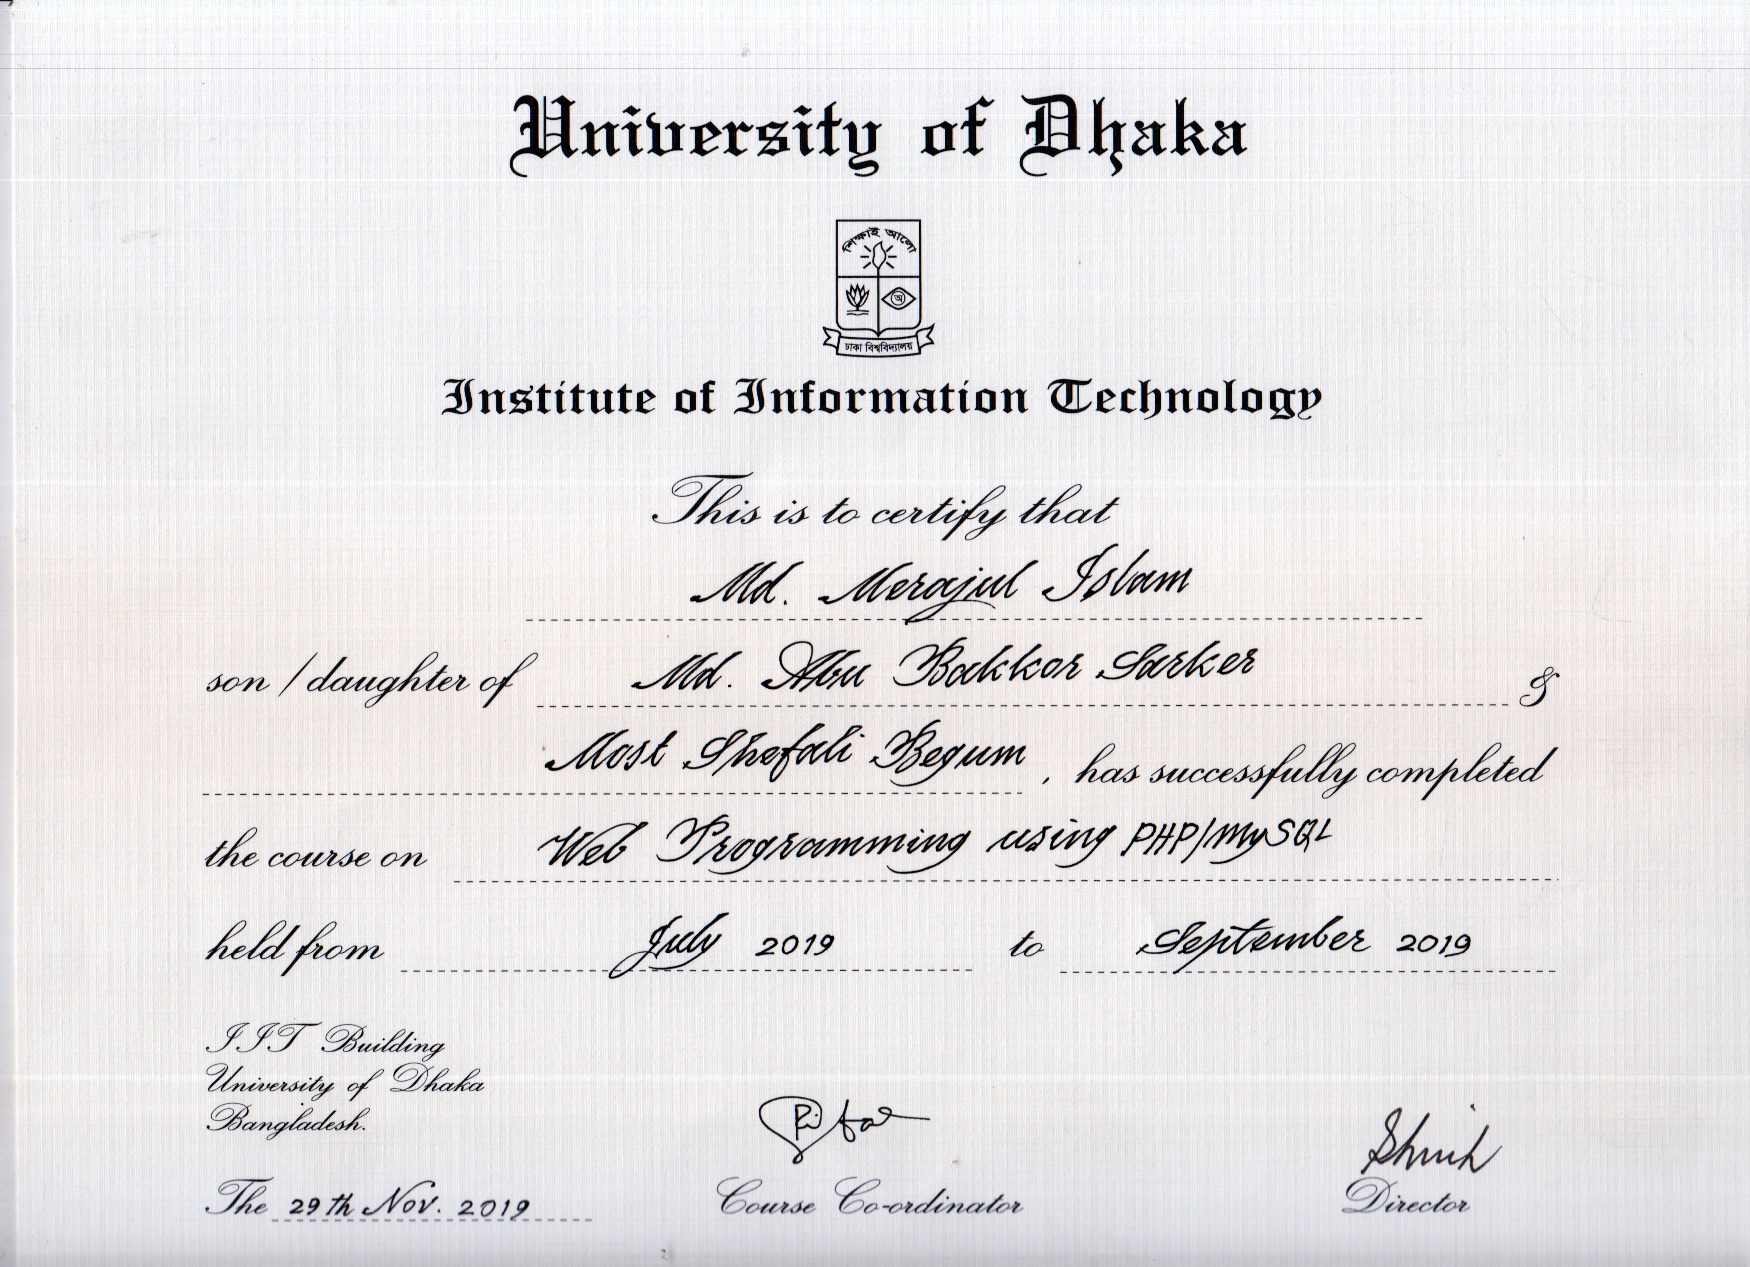 University of Dhaka
শিক্ষাই আলো
অ
ঢাকা বিশ্ববিদ্যালয়
Institute of Information Technology
This is to certify that
Md. Merajul Islam
son / daughter of Md. Abu Bakkor Sarker &
Most Shefali Begum , has successfully completed
the course on Web Programming using PHP/MySQL
held from July 2019 to September 2019
IIT Building
University of Dhaka
Bangladesh.
The 29th Nov. 2019
Course Co-ordinator
Director